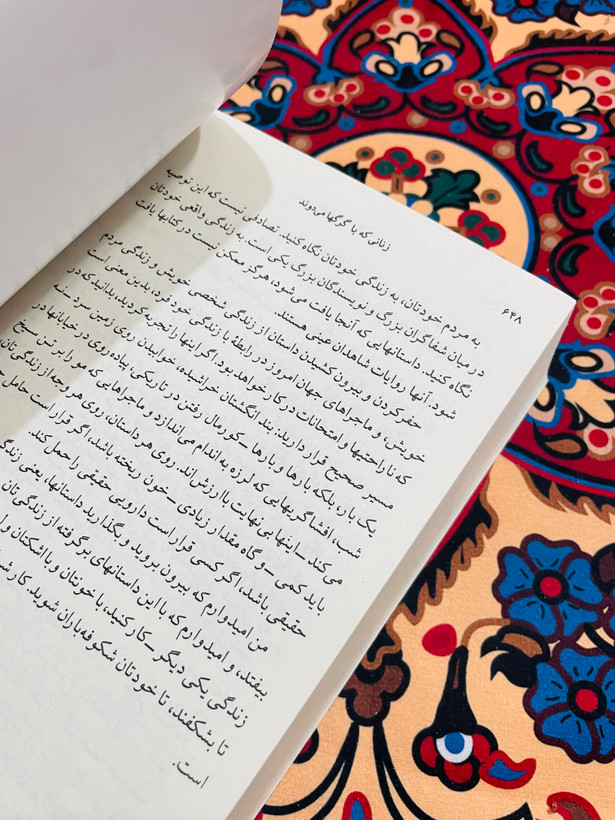 ۶۴۸
زنانی که با گرگها می‌دوند
به مردم خودتان، به زندگی خودتان نگاه کنید. تصادفی نیست که این توصیه
در میان شفاگران بزرگ و نویسندگان بزرگ یکی است. به زندگی واقعی خودتان
نگاه کنید. داستانهایی که آنجا یافت می‌شود، هرگز ممکن نیست در کتابها یافت
شود. آنها روایات شاهدان عینی هستند.
حفر کردن و بیرون کشیدن داستان از زندگی شخصی خویش و زندگی مردم
خویش، و ماجراهای جهان امروز در رابطه با زندگی خود فرد، بدین معنی است
که ناراحتیها و امتحانات در کار خواهد بود. اگر اینها را تجربه کردید، بدانید که در
مسیر صحیح قرار دارید: بند انگشتان خراشیده، خوابیدن روی زمین سرد ـ نه
یک بار، بلکه بارها و بارها ـ کورمال رفتن در تاریکی، پیاده‌روی در خیابانها در
شب، افشاگریهایی که لرزه به اندام می‌اندازد و ماجراهایی که مو را بر تن سیخ
می‌کند ـ اینهایی نهایت باارزش‌اند. روی هر داستان، روی هر وجه از زندگی‌تان،
باید کمی ـ و گاه مقدار زیادی ـ خون ریخته باشد، اگر قرار است حامل
حقیقی باشد، اگر کسی قرار است دارویی حقیقی را حمل کند.
من امیدوارم که بیرون بروید و بگذارید داستانها، یعنی زندگی
بیفتد، و امیدوارم که با این داستانهای برگرفته از زندگی‌تان
زندگی یکی دیگر ـ کار کنید، با خونتان و با اشکتان و با
تا بشکفند، تا خودتان شکوفه‌باران شوید. کار
است.